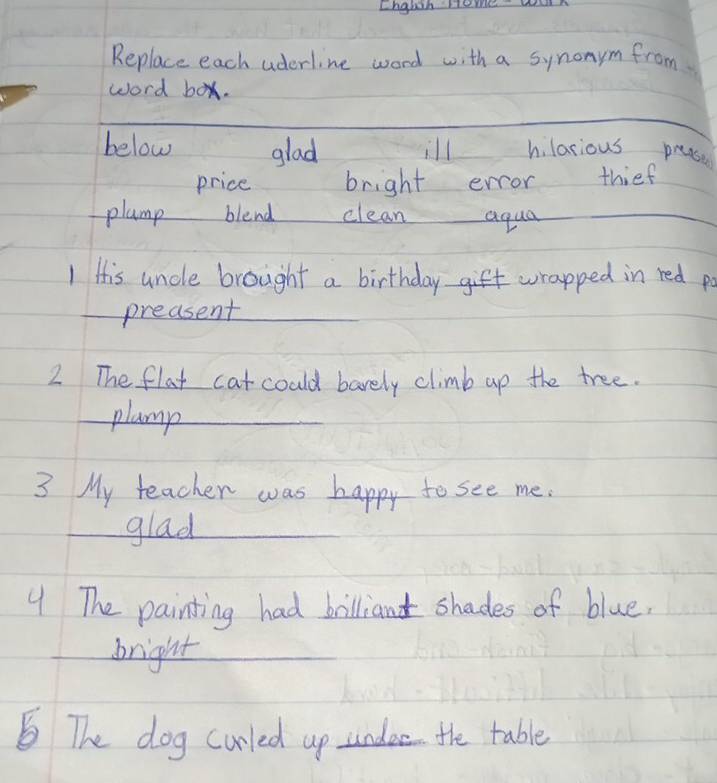 English Home-Work
Replace each uderline word with a synonym from
word box.
below glad ill hilarious
price bright error thief
plump blend clean aqua
1 His uncle brought a birthday gift wrapped in red
preasent
2 The flat cat could barely climb up the tree.
plump
3 My teacher was happy to see me.
glad
4 The painting had brilliant shades of blue.
bright
5 The dog curled up under the table